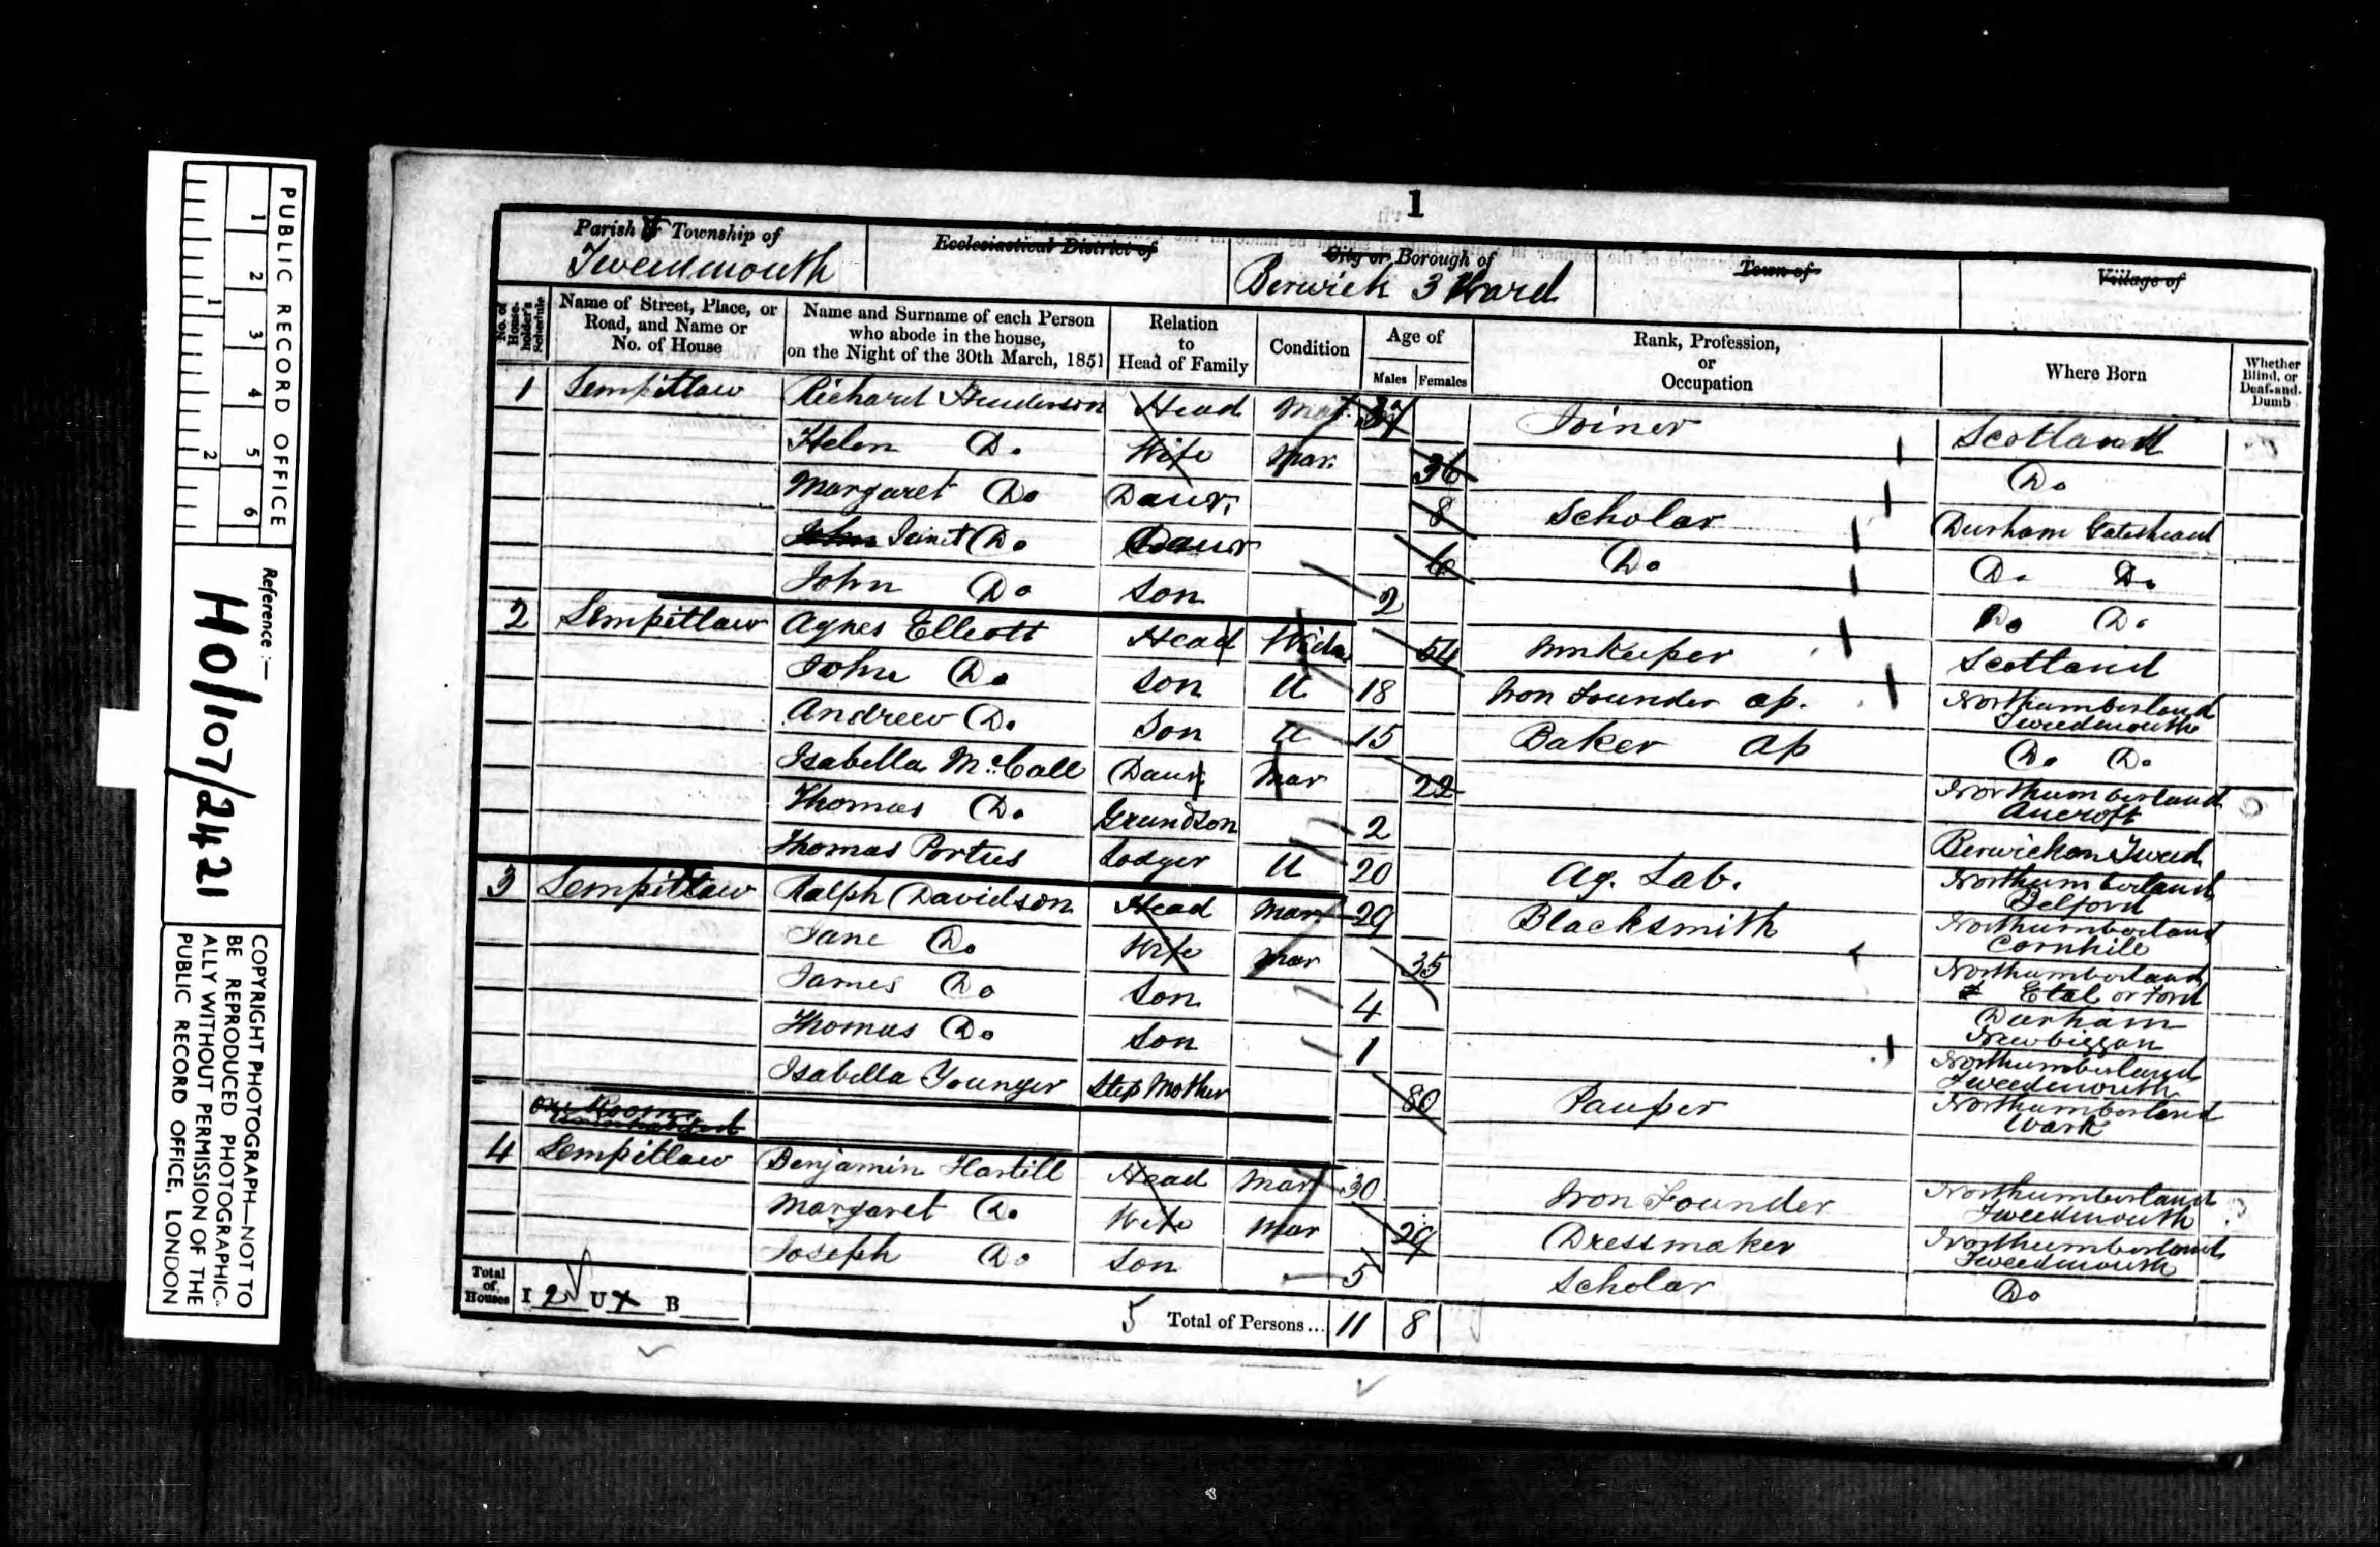 1
Parish or Township of
Tweedmouth
Ecclesiastical District of
City or Borough of
Berwick 3 Ward
Town of
Village of
No. of Householder's Schedule
Name of Street, Place, or Road, and Name or No. of House
Name and Surname of each Person who abode in the house, on the Night of the 30th March, 1851
Relation to Head of Family
Condition
Age of
Males Females
Rank, Profession, or Occupation
Where Born
Whether Blind, or Deaf-and-Dumb
1 Sempitlaw Richard Henderson Head Mar. 37 Joiner Scotland
Helen Do. Wife Mar. 36 Do
Margaret Do Daur. 8 Scholar Durham Gateshead
John Jinet Do Daur 6 Do Do. Do.
John Do Son 2 Do Do.
2 Sempitlaw Agnes Elliott Head Wido 54 Innkeeper Scotland
John Do Son U 18 Iron Founder ap. Northumberland Tweedmouth
Andrew Do. Son U 15 Baker ap Do. Do.
Isabella McCall Daur Mar 22 Northumberland Ancroft
Thomas Do. Grandson 2 Berwick on Tweed
Thomas Porteus Lodger U 20 Ag. Lab. Northumberland Belford
3 Sempitlaw Ralph Davidson Head Mar 29 Blacksmith Northumberland Cornhill
Jane Do Wife Mar 35 Northumberland Etal or Ford
James Do Son 4 Durham Newbiggan
Thomas Do Son 1 Northumberland Tweedmouth
Isabella Younger Step Mother 80 Pauper Northumberland Wark
One Room Uninhabited
4 Sempitlaw Benjamin Hartill Head Mar 30 Iron Founder Northumberland Tweedmouth
Margaret Do. Wife Mar 29 Dressmaker Northumberland Tweedmouth
Joseph Do Son 5 Scholar Do
Total of Houses I 2 U B
5 Total of Persons... 11 8
PUBLIC RECORD OFFICE
1 2 3 4 5 6
1 2
Reference :-
HO/107/2421
COPYRIGHT PHOTOGRAPH—NOT TO
BE REPRODUCED PHOTOGRAPHIC-
ALLY WITHOUT PERMISSION OF THE
PUBLIC RECORD OFFICE, LONDON